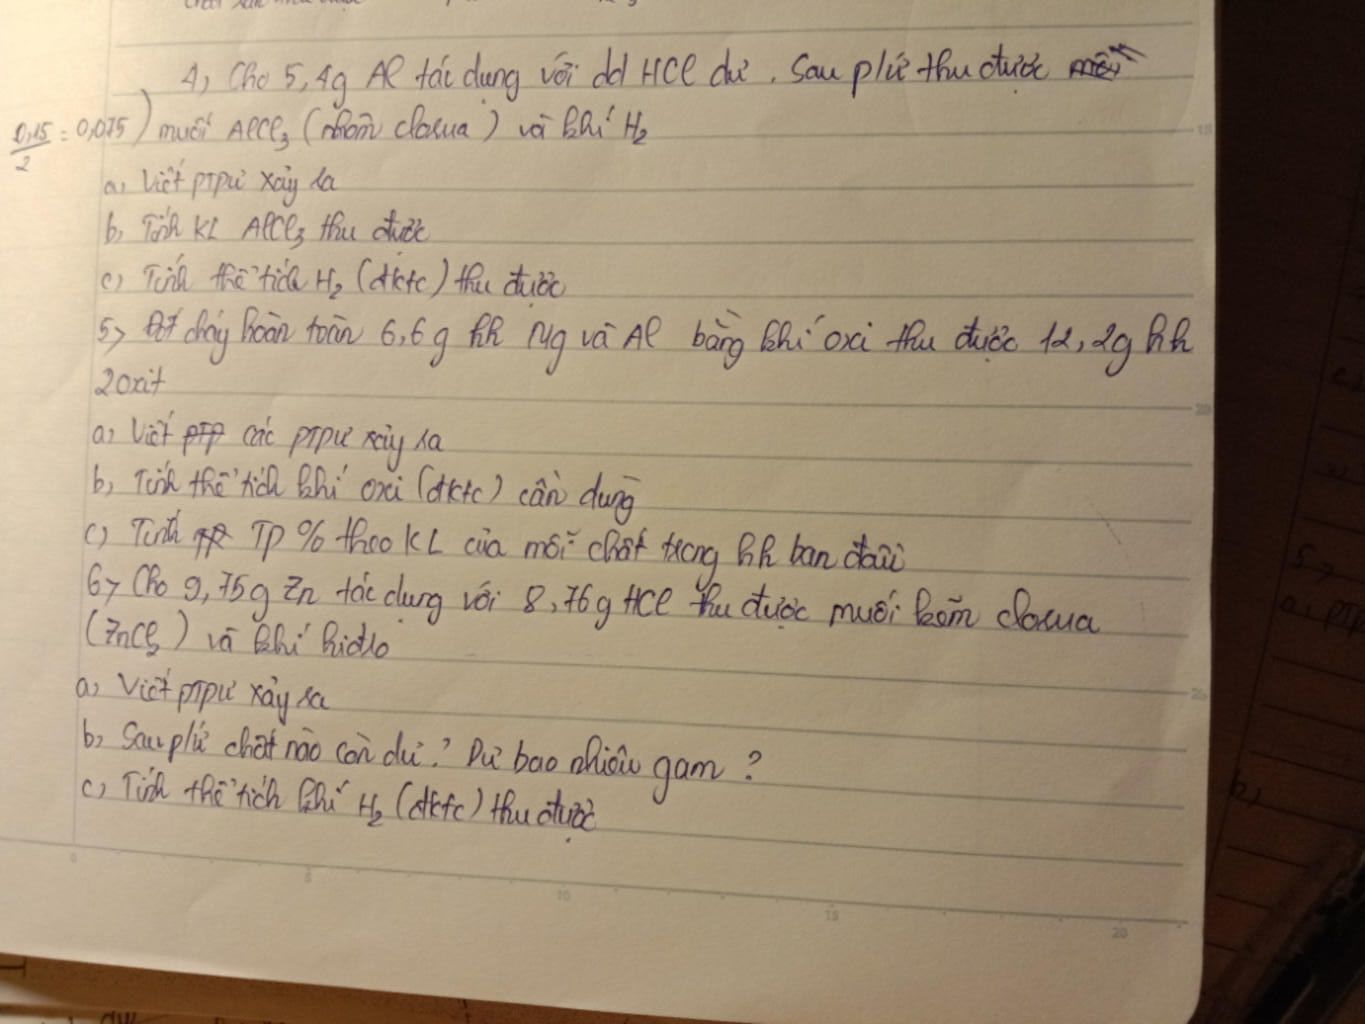 4, Cho 5,4g Al tác dụng với dd HCl dư. Sau pứ thu được
0,15/2 = 0,075) muối AlCl3 (nhôm clorua) và khí H2
a, Viết ptpư xảy ra
b, Tính KL AlCl3 thu được
c) Tính thể tích H2 (đktc) thu được
5> Đốt cháy hoàn toàn 6,6g hh Mg và Al bằng khí oxi thu được 12,2g hh
2 oxit
a, Viết ptp các ptpư xảy ra
b, Tính thể tích khí oxi (đktc) cần dùng
c) Tính TP % theo KL của mỗi chất trong hh ban đầu
6> Cho 9,75g Zn tác dụng với 8,76g HCl thu được muối kẽm clorua
(ZnCl2) và khí hidro
a, Viết ptpư xảy ra
b, Sau pứ chất nào còn dư? Dư bao nhiêu gam?
c, Tính thể tích khí H2 (đktc) thu được
5
10
15
20
15
20
25